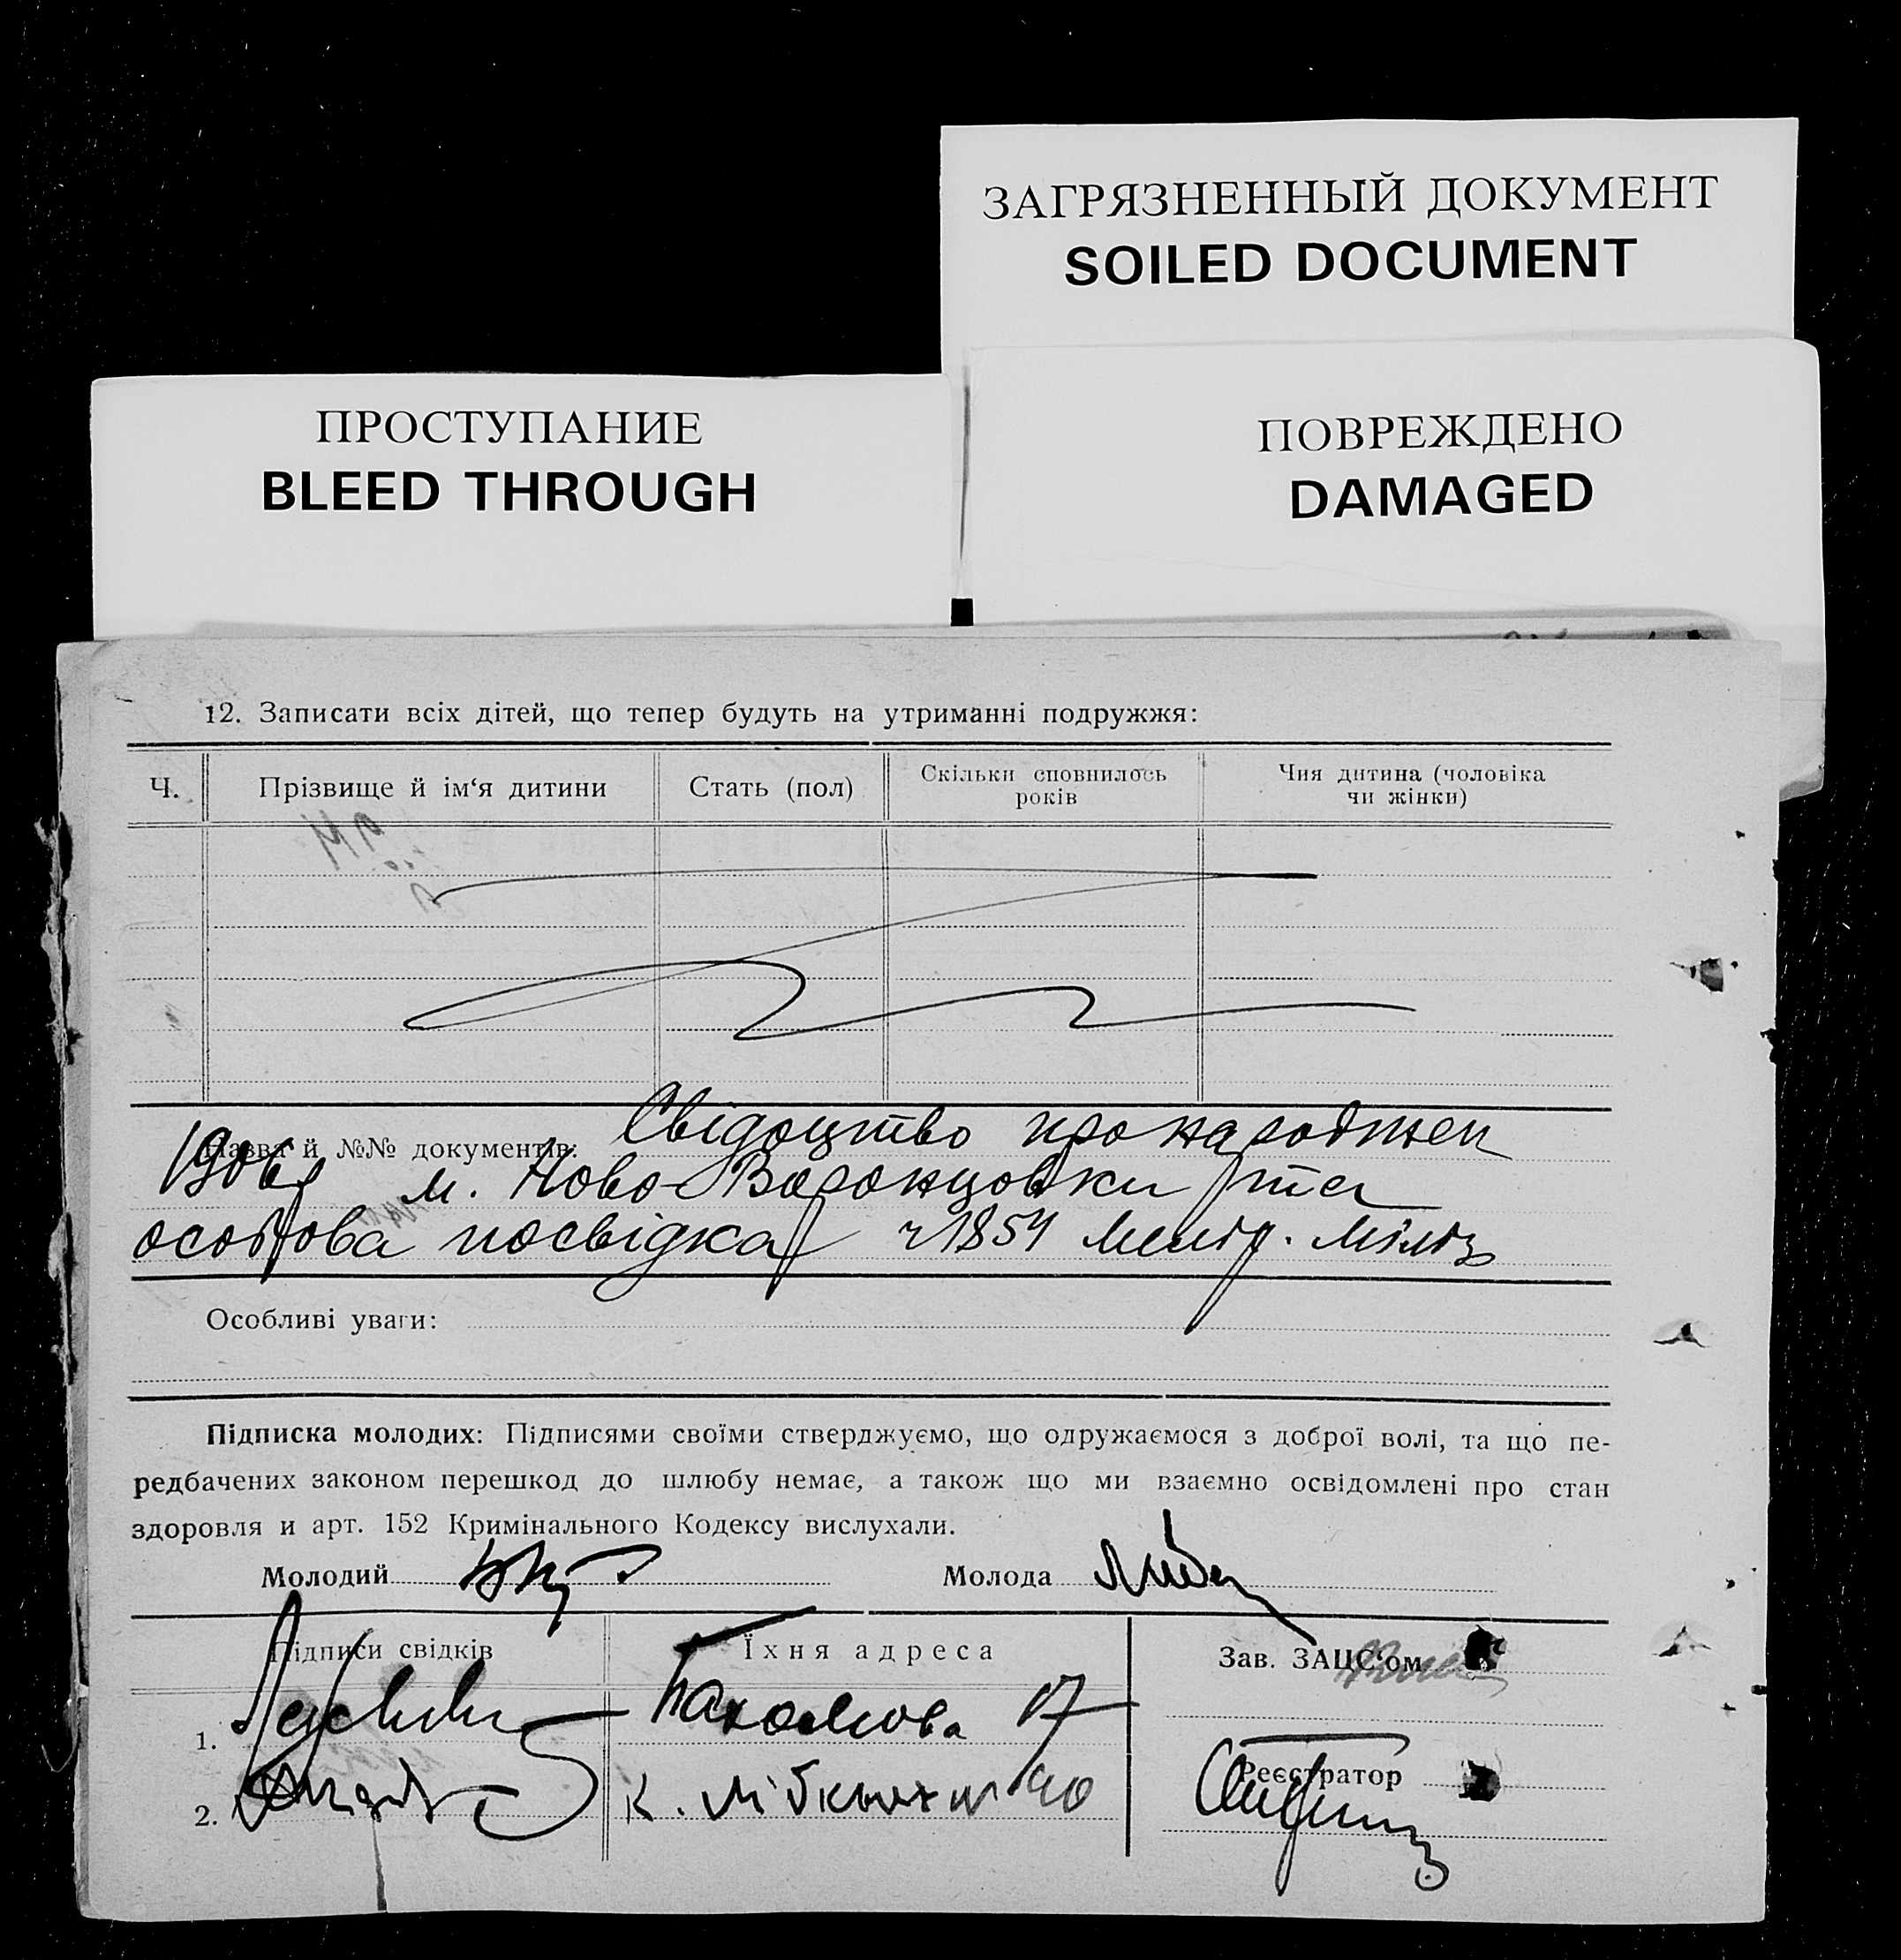 ЗАГРЯЗНЕННЫЙ ДОКУМЕНТ
SOILED DOCUMENT
ПРОСТУПАНИЕ
BLEED THROUGH
ПОВРЕЖДЕНО
DAMAGED
12. Записати всіх дітей, що тепер будуть на утриманні подружжя:
Ч. Прізвище й ім‘я дитини Стать (пол) Скільки сповнилось років Чия дитина (чоловіка чи жінки)
Назва й №№ документів: Свідоцтво про народжен
1906р м. Ново-Воронцовки та
особова посвідка ч 1854 міліц
Особливі уваги:
Підписка молодих: Підписями своїми стверджуємо, що одружаємося з доброї волі, та що пе-
редбачених законом перешкод до шлюбу немає, а також що ми взаємно освідомлені про стан
здоровля и арт. 152 Кримінального Кодексу вислухали.
Молодий Молода
Підписи свідків Їхня адреса Зав. ЗАЦС‘ом
1. 17
Реєстратор
2. К. Лібкнехта 40